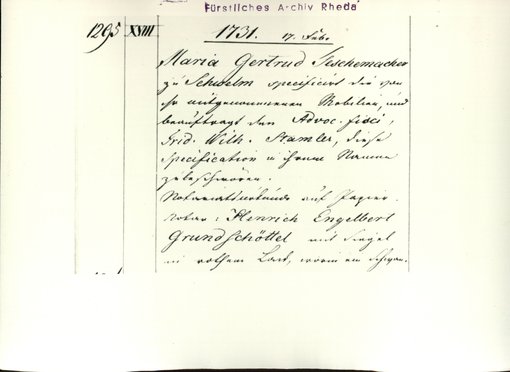 Fürstliches Archiv Rheda
1295 XVIII 1731. 17. Febr.
Maria Gertrud
zu Schwelm specificirt die von
ihr mitgenommenen Mobilien, und
beauftragt den Advoc. fisci,
Frid. Wilh. Stamler, diese
Specification in ihrem Namen
zu beschwören.
Notariatsurkunde auf Papier.
Notar: Henrich Engelbert
Grundschöttel mit Siegel
in rothem Lack, worin ein